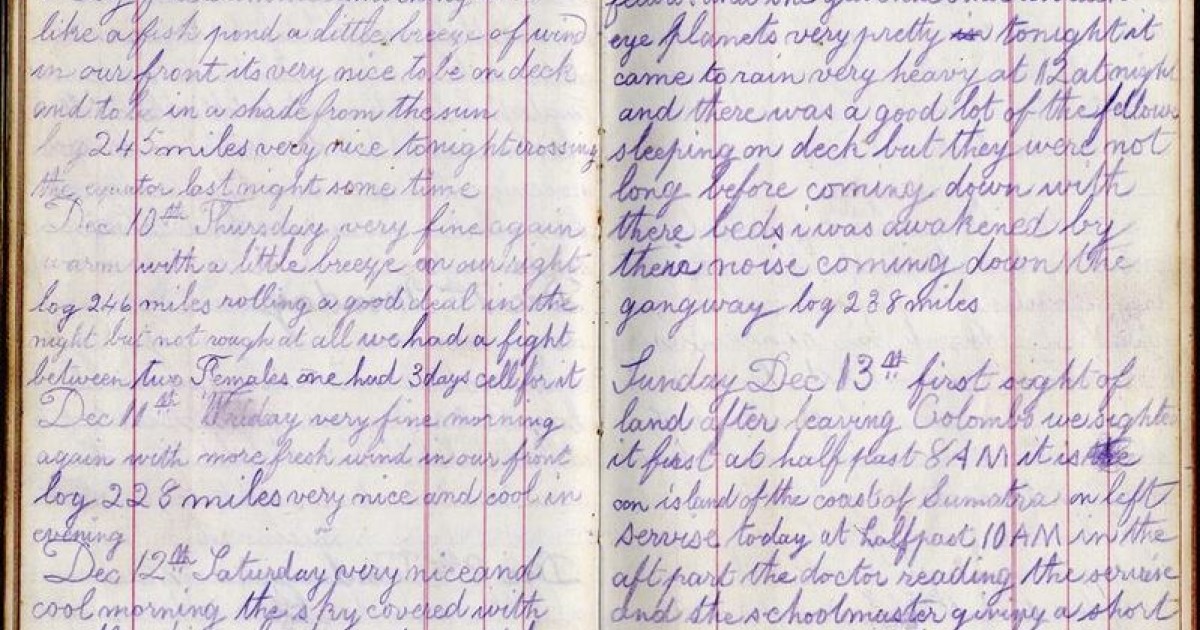 like a fish pond a little breeze of wind
in our front its very nice to be on deck
and to be in a shade from the sun
log 245 miles very nice tonight crossing
the equator last night some time
Dec 10th Thursday very fine again
warm with a little breeze on our right
log 246 miles rolling a good deal in the
night but not rough at all we had a fight
between two Females one had 3 days cell for it
Dec 11th Friday very fine morning
again with more fresh wind in our front
log 228 miles very nice and cool in
evening
Dec 12th Saturday very nice and
cool morning the sky covered with
eye planets very pretty tonight it
came to rain very heavy at 12 at night
and there was a good lot of the fellows
sleeping on deck but they were not
long before coming down with
there beds i was awakened by
there noise coming down the
gangway log 238 miles
Sunday Dec 13th first sight of
land after leaving Colombo we sighted
it first at half past 8 AM it is
an island of the coast of Sumatra on left
servise today at half past 10 AM in the
aft part the doctor reading the servise
and the schoolmaster giving a short